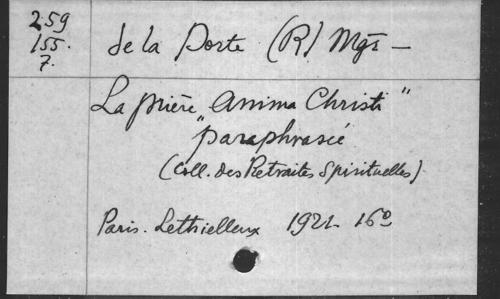 259
155.
7.
de la Porte (R) Mgr —
La prière "Anima Christi"
paraphrasée
(Coll. des Retraites Spirituelles)
Paris. Lethielleux 1921 16º